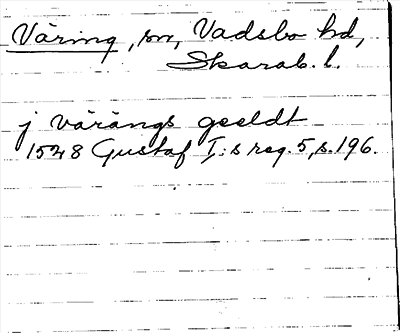 Väring, sn, Vadsbo hd,
Skarab. l.
j värängs geeldt
1528 Gustaf I:s reg. 5, s. 196.